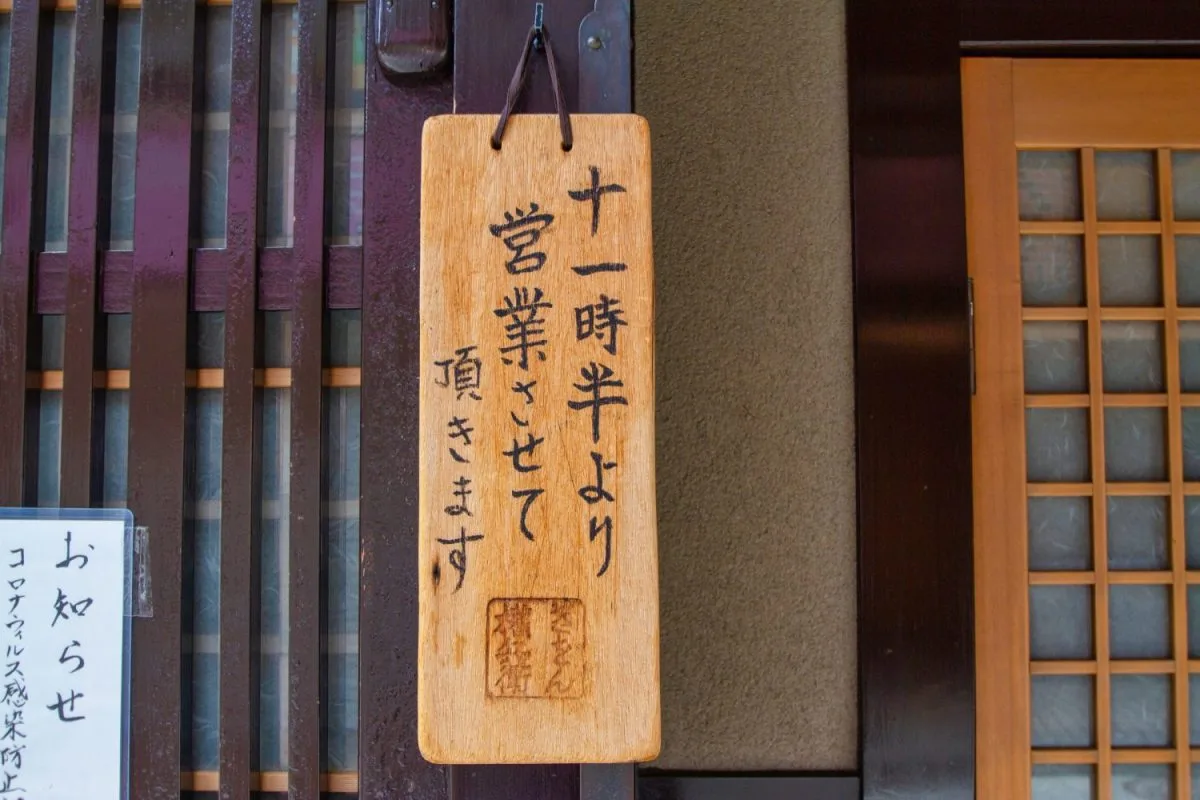 十一時半より
営業させて
頂きます
ぎをん
権兵衛
お知らせ
コロナウィルス感染防止